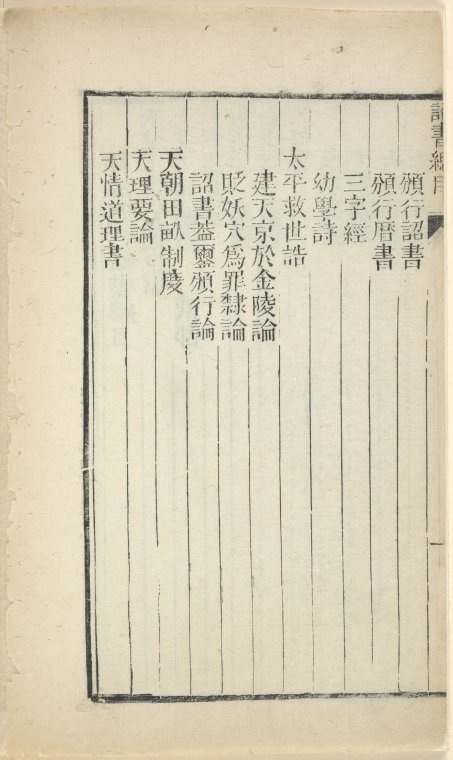 詔書總目
一
頒行詔書
頒行暦書
三字經
幼學詩
太平救世誥
建天京於金陵論
貶妖穴爲罪隸論
詔書葢璽頒行論
天朝田畝制度
天理要論
天情道理書